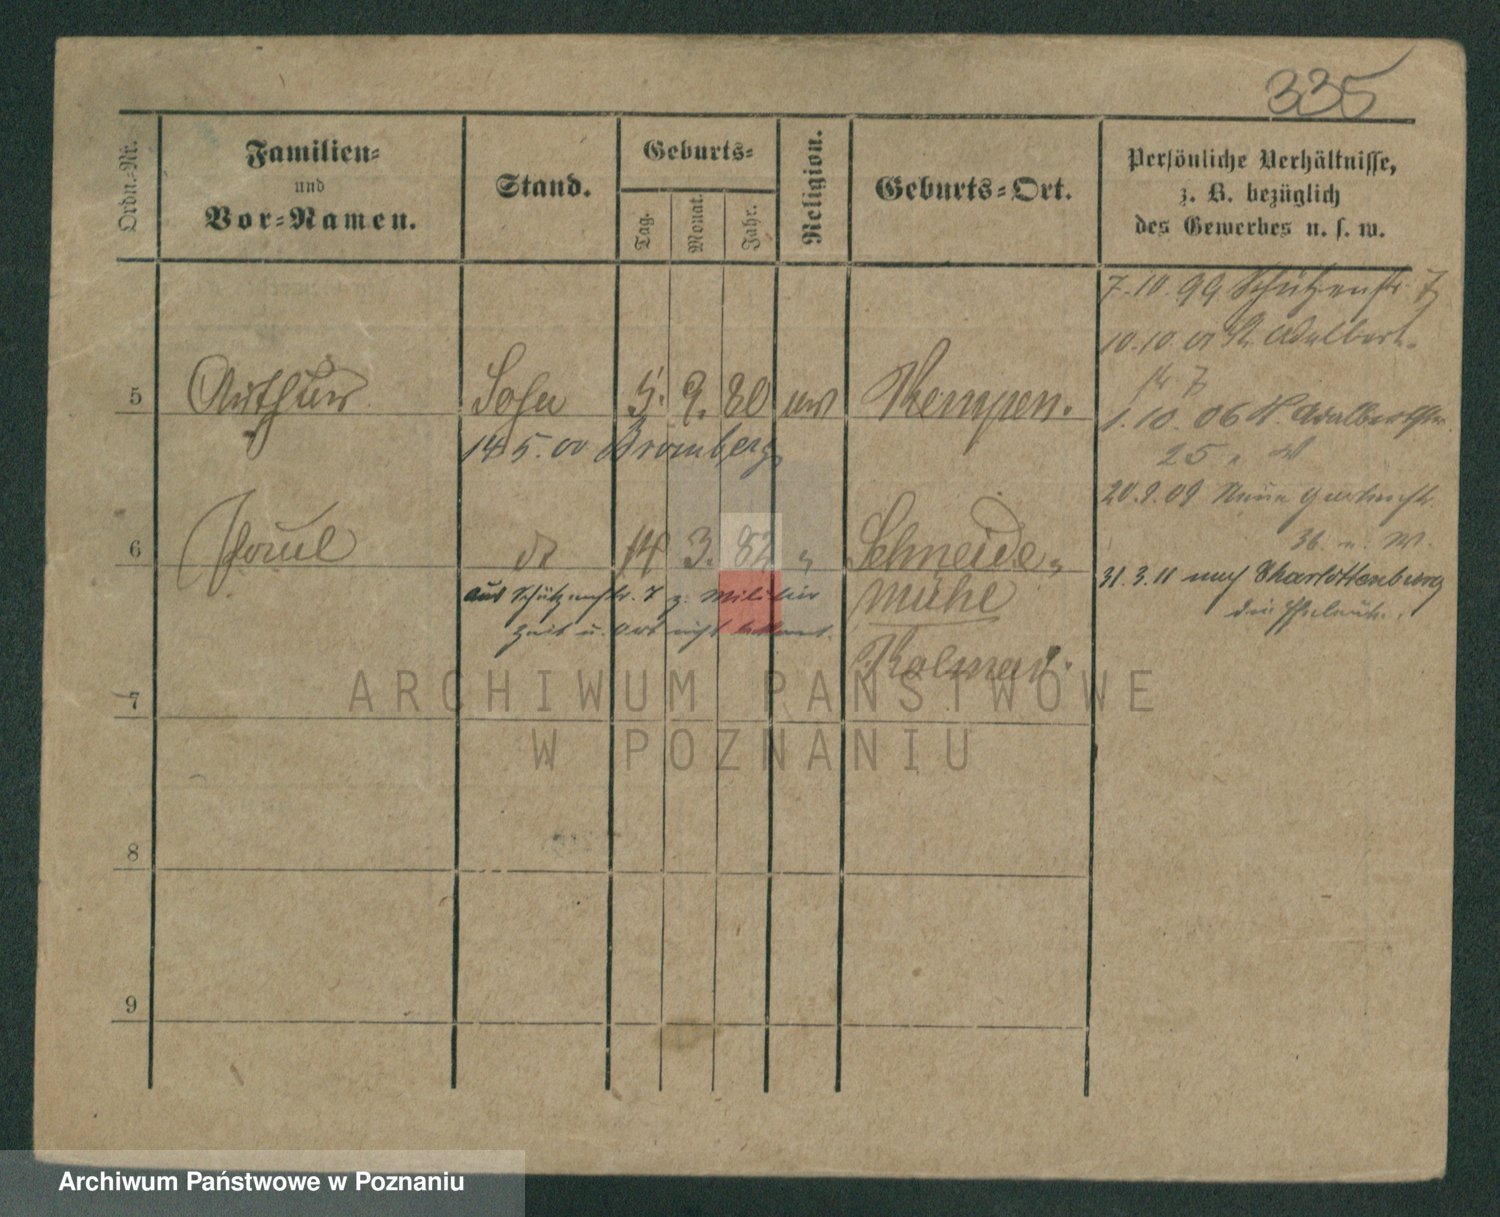 335
Ordn.-Nr.
Familien-
und
Vor-Namen.
Stand.
Geburts-
Tag.
Monat.
Jahr.
Religion.
Geburts-Ort.
Persönliche Verhältnisse,
z. B. bezüglich
des Gewerbes u. s. w.
7.10.99 Schützenstr. 7
10.10.01 St. Adalbert-
str 7
5 Arthur Sohn 5. 9. 80 ev Kempen.
1.10.06 St. Adalbertstr.
14.5.00 Bromberg
25
20.9.09 Neue Gartenstr.
6 Paul do 14 3. 82 " Schneide-
36
mühl
31.3.11 nach Charlottenburg
aus Schützenstr. 7 z. Militär
die Eheleute.
Zeit u. Ort nicht bekannt.
Kolmar.
7
ARCHIWUM PAŃSTWOWE
W POZNANIU
8
9
Archiwum Państwowe w Poznaniu